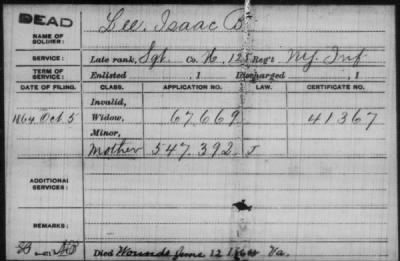 DEAD
NAME OF SOLDIER: Lee, Isaac B.
SERVICE: Late rank, Sgt. Co. K, 125 Reg't N.Y. Inf
TERM OF SERVICE: Enlisted , 1 Discharged , 1
DATE OF FILING. CLASS. APPLICATION NO. LAW. CERTIFICATE NO.
Invalid,
1864 Oct. 5 Widow, 67.669 41367
Minor,
Mother 547.392 J
ADDITIONAL SERVICES:
REMARKS:
Died Wounds June 12 1864 Va.